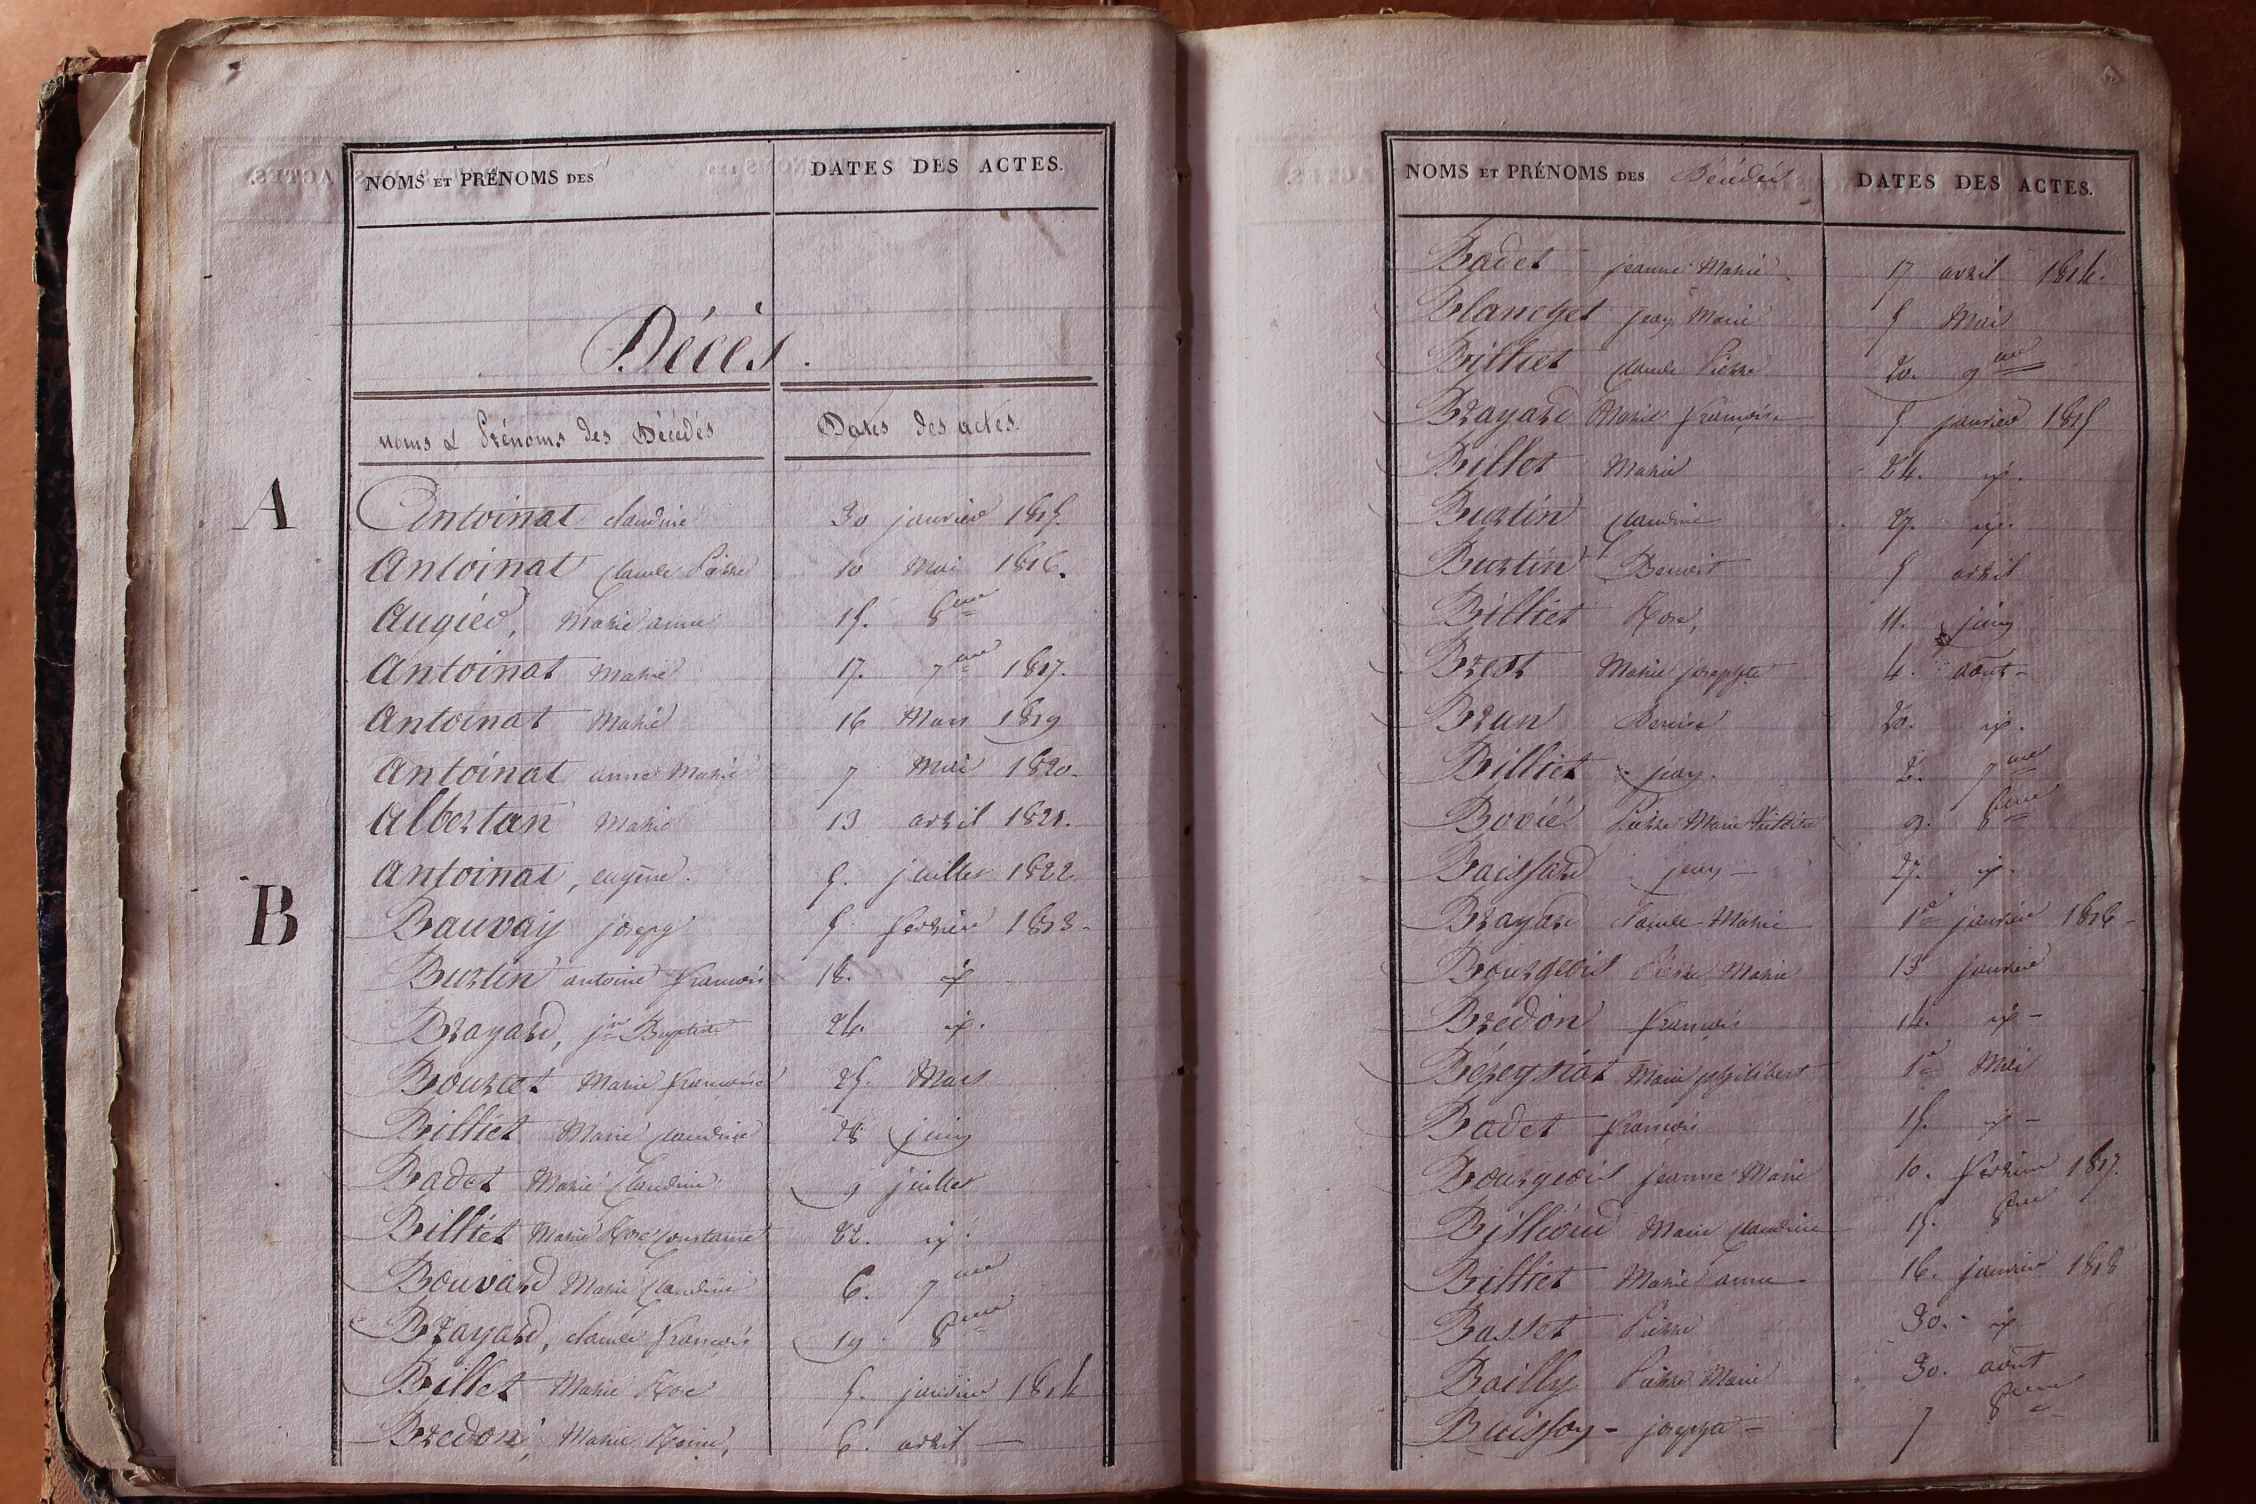 NOMS ET PRÉNOMS DES DATES DES ACTES.
Décès.
noms & Prénoms des Décédés Dates des actes.
A
Antoinat claudine 30 janvier 1815.
Antoinat claude Pierre 10 Mai 1816.
Augier, Marie anne 15. 8bre
Antoinat Marie 17. 7bre 1817.
Antoinat Marie 16 Mars 1819
Antoinat anne Marie 7 Mai 1820.
Albertan Marie 13 avril 1821.
Antoinat, eugène. 5. juillet 1822.
B
Bauvay joseph 5 février 1813.
Burtin antoine françois 18. id
Brayard, jn Baptiste 24. id.
Bourcet Marie françoise 25. Mars
Billiet Marie claudine 28 juin
Badet Marie Claudine 9 juillet
Billiet Marie Rose Constance 22. id.
Bouvard Marie Claudine 6. 7bre
Brayard, claude françois 19. 8bre
Billet Marie Rose 5. janvier 1814
Bredon, Marie Reine, 6. avril
NOMS ET PRÉNOMS DES Décédés DATES DES ACTES.
Badet jeanne Marie 17 avril 1814.
Blanchet jean Marie 5 Mai
Billiet claude Pierre 20. 9bre
Brayard Marie françoise 5 janvier 1815
Billet Marie 24. id.
Burtin claudine 27. id.
Burtin Benoit 5 avril
Billiet Rose, 11. juin
Brest Marie josephte 4. août
Brun Denise 20. id.
Billiet jean. 2. 7bre
Bovié Pierre Marie 9. 8bre
Baissard jean 27. id.
Brayard Claude Marie 1er janvier 1816
Bourgeois Pierre Marie 13 janvier
Bredon françois 14. id
Béreyziat Marie philibert 1er Mai
Badet françois 15. id
Bourgeois jeanne Marie 10. février 1817.
Billioud Marie claudine 15. 8bre
Billiet Marie anne 16. janvier 1818
Basset Pierre 30. id
Bailly Pierre Marie 30. août
Buisson - josephte - 7 8bre